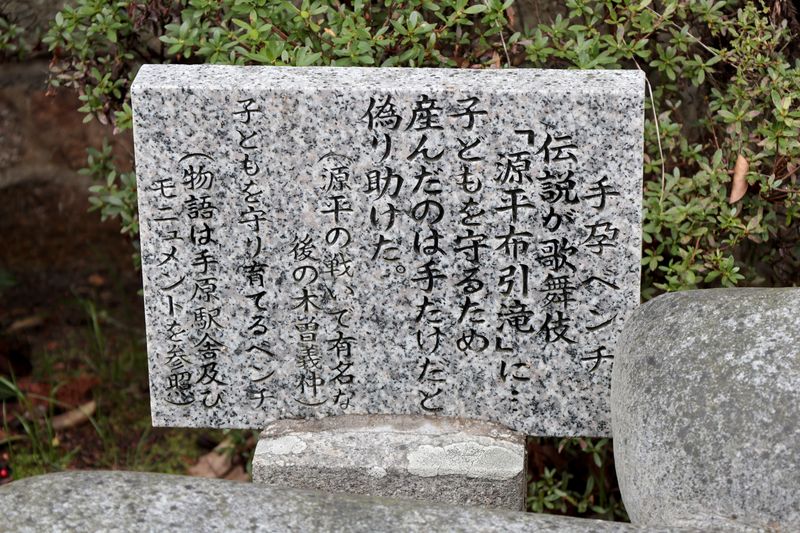 手孕ベンチ
伝説が歌舞伎
「源平布引滝」に…
子どもを守るため
産んだのは手だけだと
偽り助けた。
（源平の戦いで有名な
後の木曽義仲）
子どもを守り育てるベンチ
（物語は手原駅舎及び
モニュメントを参照）